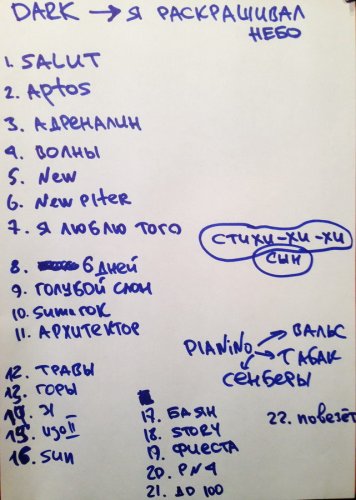 DARK → Я РАСКРАШИВАЛ
НЕБО
1. SALUT
2. Aptos
3. АДРЕНАЛИН
4. ВОЛНЫ
5. New
6. New Piter
7. Я ЛЮБЛЮ ТОГО
СТИХИ-ХИ-ХИ
СЫН
8. 6 дней
9. ГОЛУБОЙ СЛОН
10. Sumarok
11. АРХИТЕКТОР
PIANINO → ВАЛЬС
→ ТАБАК
СЕНБЕРЫ
12. ТРАВЫ
13. ГОРЫ
14.
15. ugol
16. sun
17. БАЯН
18. STORY
19. ФИЕСТА
20. PN4
21. ДО 100
22. повезёт